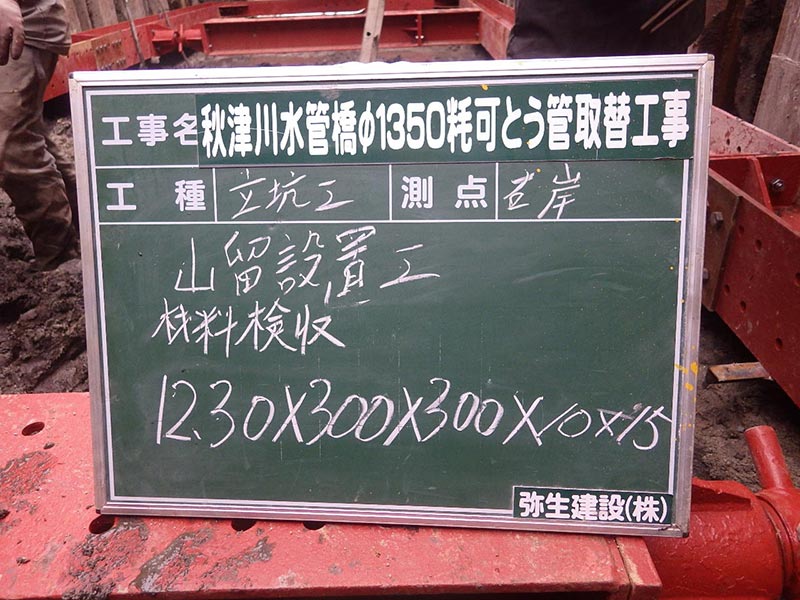 工事名 秋津川水管橋φ1350粍可とう管取替工事
工種 立坑工 測点 右岸
山留設置工
材料検収
12.30X300X300X10X15
弥生建設(株)